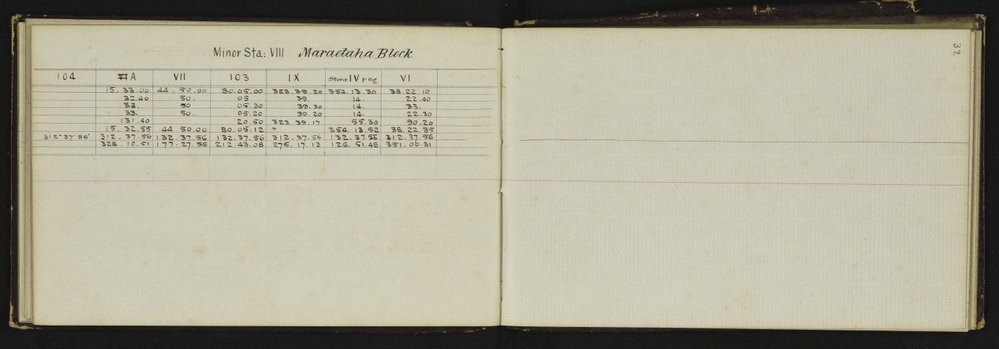 Minor Sta: VIII Maraetaha Block
104 A VII 103 IX Stone IV peg VI
15.33.00 44.50.00 80.05.00 323.39.20 354.13.30 38.22.10
32.40 50. 05 39. 14. 22.40
33. 50 05.30 39.30 14. 33.
33. 50. 05.20 39.20 14. 22.30
131.40 20.50 323.39.17 55.30 90.20
15.32.55 44.50.00 80.05.12 " 354.13.52 38.22.35
312°37'56" 312.37.56 132.37.56 132.37.56 312.37.56 132.37.56 312.37.56
328.10.51 177.27.56 212.43.08 276.17.13 126.51.48 351.00.31
32